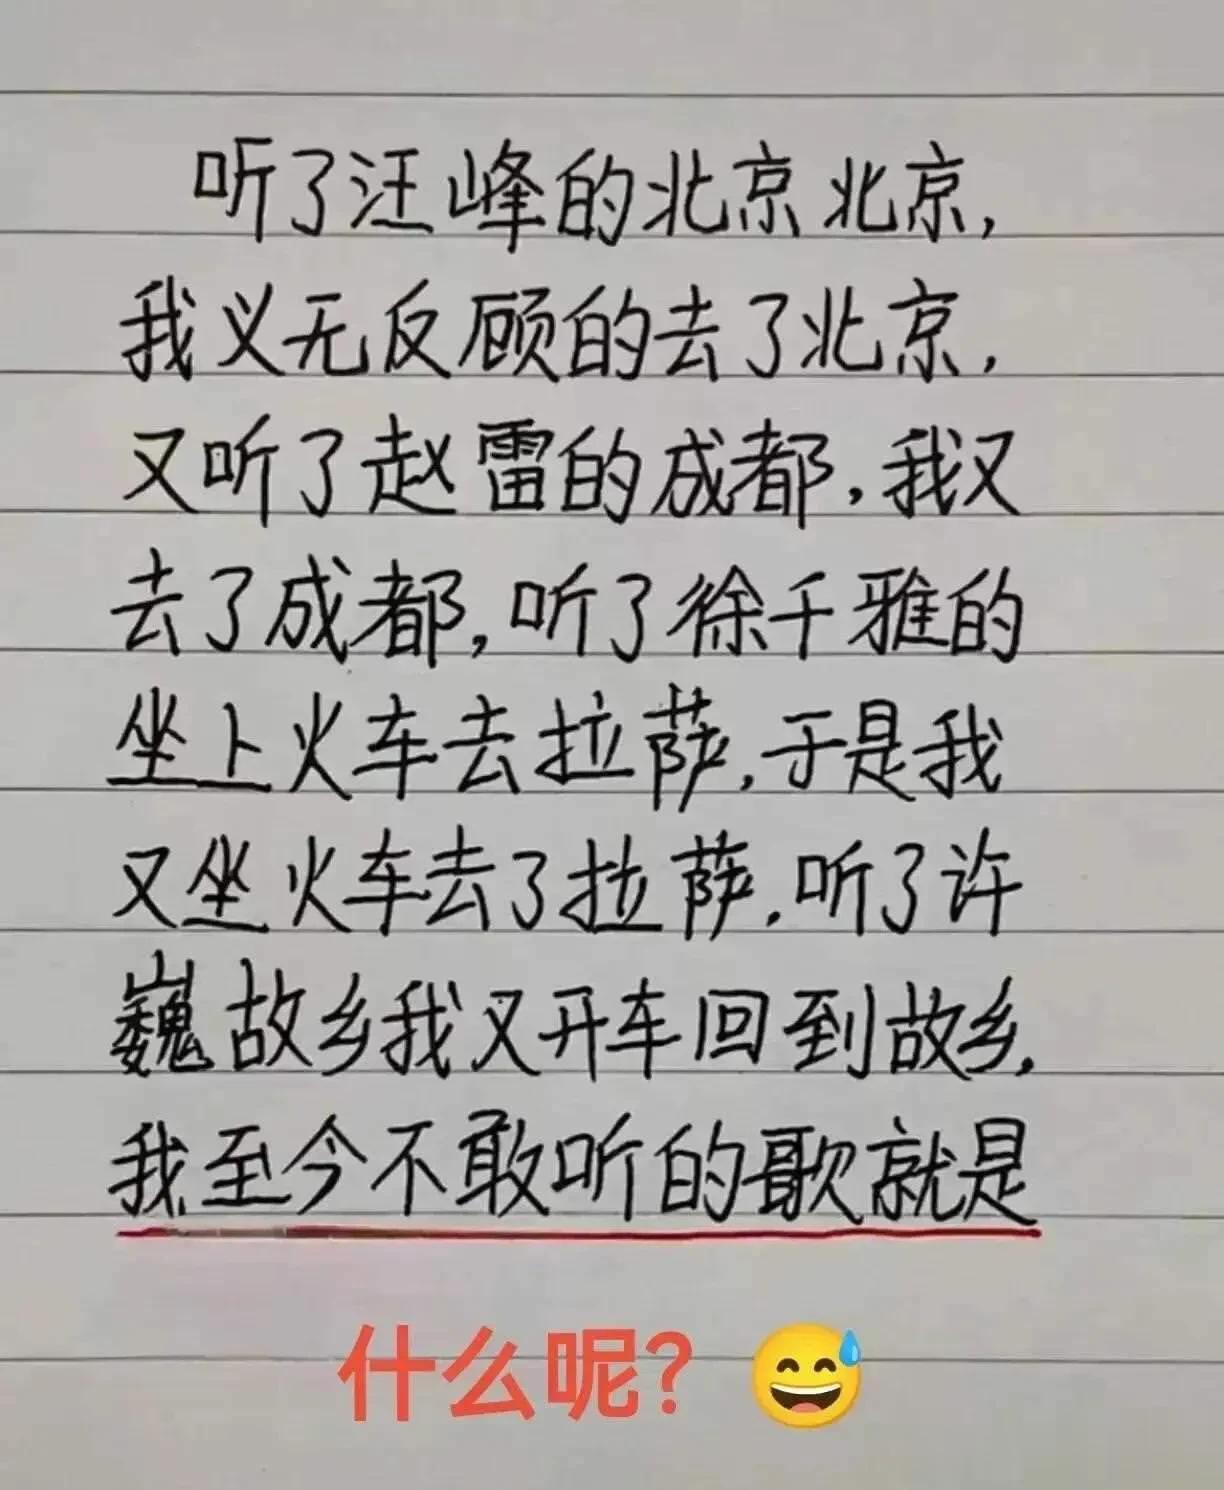 听了汪峰的北京北京,
我义无反顾的去了北京,
又听了赵雷的成都,我又
去了成都,听了徐千雅的
坐上火车去拉萨,于是我
又坐火车去了拉萨.听了许
巍故乡我又开车回到故乡.
我至今不敢听的歌就是
什么呢?😅